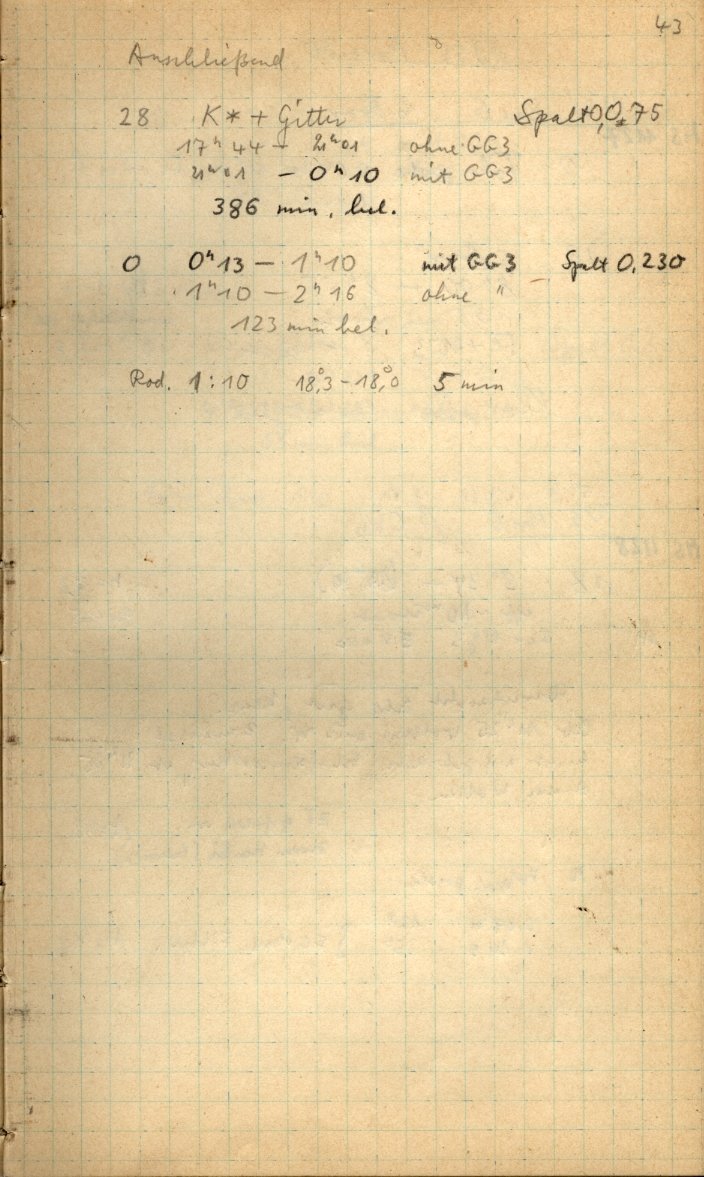 43
Anschließend
28 K* + Gitter Spalt 0,075
17ʰ 44 – 21ʰ 01 ohne GG3
21ʰ 01 – 0ʰ 10 mit GG3
386 min. bel.
0 0ʰ 13 – 1ʰ 10 mit GG3 Spalt 0,230
1ʰ 10 – 2ʰ 16 ohne "
123 min bel.
Rod. 1:10 18,°3 – 18,°0 5 min